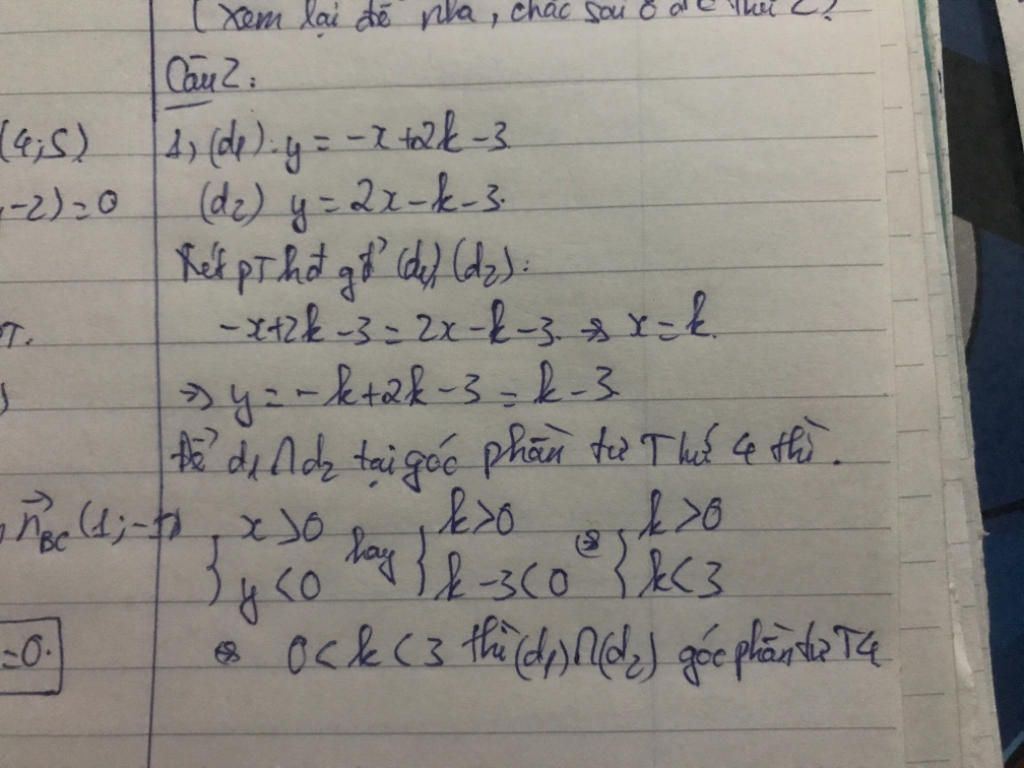 (xem lại đề nha, chắc sai ở
Câu 2:
(4;5)
1, (d1): y = -x+2k-3
-2) = 0
(d2) y = 2x-k-3.
Xét pT hđ gđ (d1) (d2):
-x+2k-3 = 2x-k-3. => x = k.
PT.
=> y = -k+2k-3 = k-3
Để d1∩d2 tại góc phần tư Thứ 4 thì.
n⃗BC (1;-1)
{ x>0 hay { k>0 <=> { k>0
y<0 k-3<0 k<3
=0.
<=> 0<k<3 thì (d1)∩(d2) góc phần tư T4